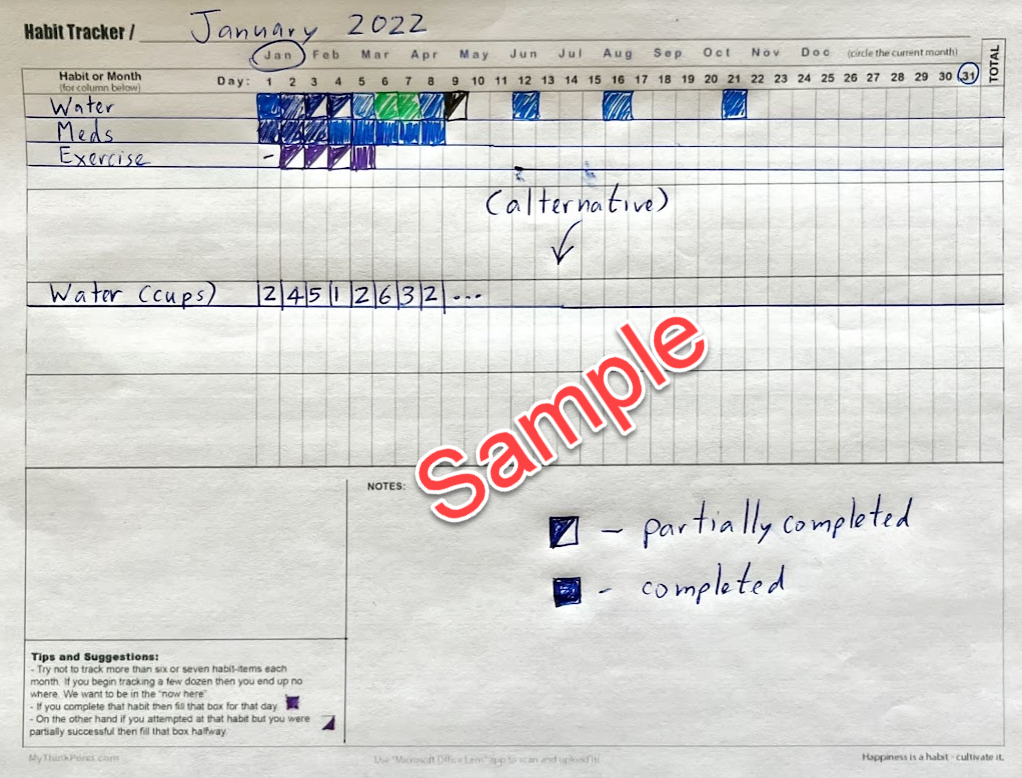 Habit Tracker / January 2022
Jan Feb Mar Apr May Jun Jul Aug Sep Oct Nov Doc (circle the current month)
TOTAL
Habit or Month
(for column below)
Day: 1 2 3 4 5 6 7 8 9 10 11 12 13 14 15 16 17 18 19 20 21 22 23 24 25 26 27 28 29 30 31
Water
Meds
Exercise -
(alternative)
Water (cups) 2 4 5 1 2 6 3 2 ...
Sample
NOTES:
- partially completed
- completed
Tips and Suggestions:
- Try not to track more than six or seven habit-items each
month. If you begin tracking a few dozen then you end up no
where. We want to be in the "now here"
- If you complete that habit then fill that box for that day.
- On the other hand if you attempted at that habit but you were
partially successful then fill that box halfway.
MyThinkPond.com
Use "Microsoft Office Lens" app to scan and upload it!
Happiness is a habit - cultivate it.